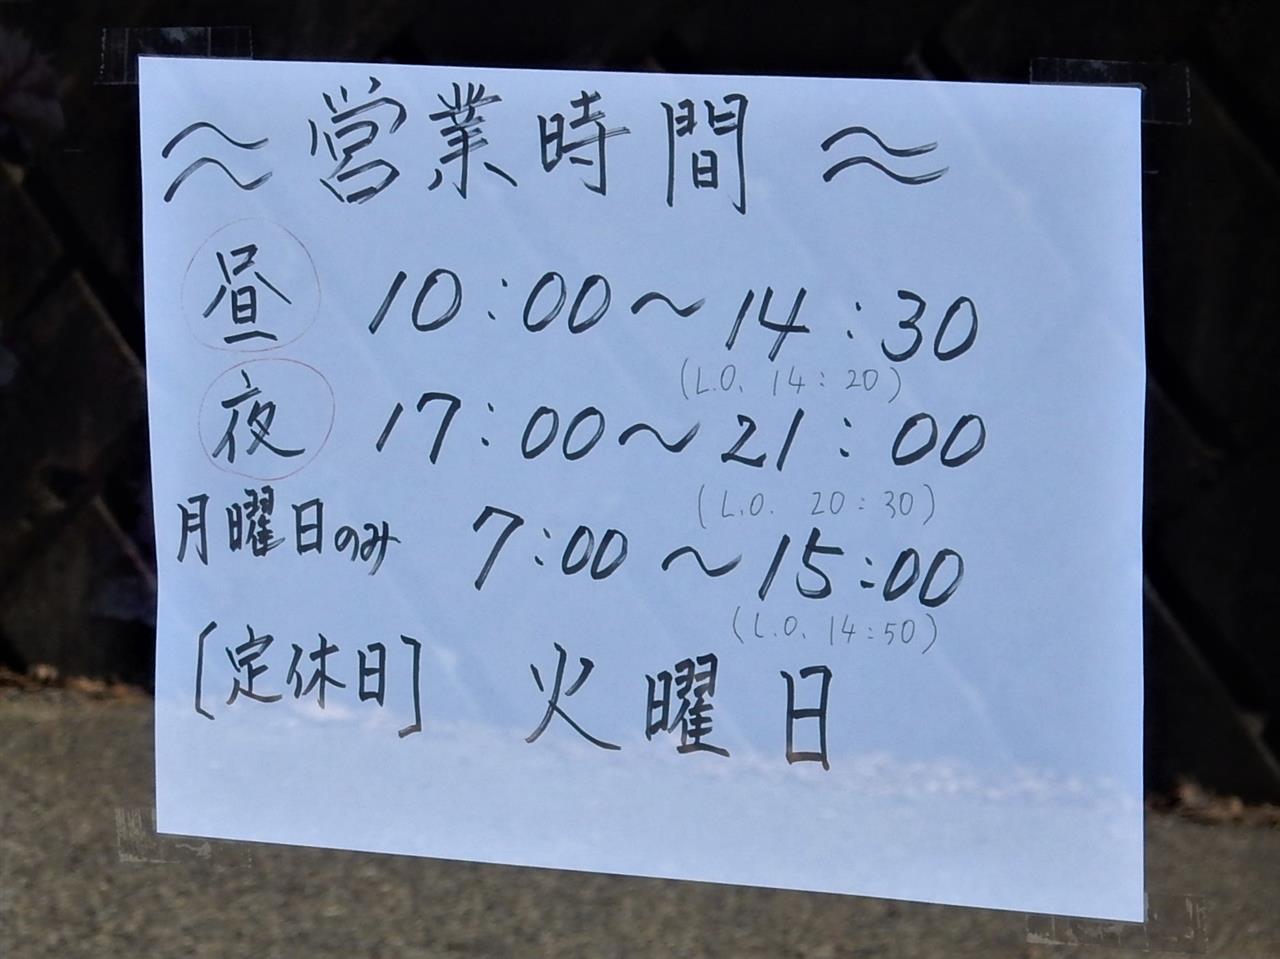 〜営業時間〜
昼 10:00〜14:30
(L.O. 14:20)
夜 17:00〜21:00
(L.O. 20:30)
月曜日のみ 7:00〜15:00
(L.O. 14:50)
[定休日] 火曜日